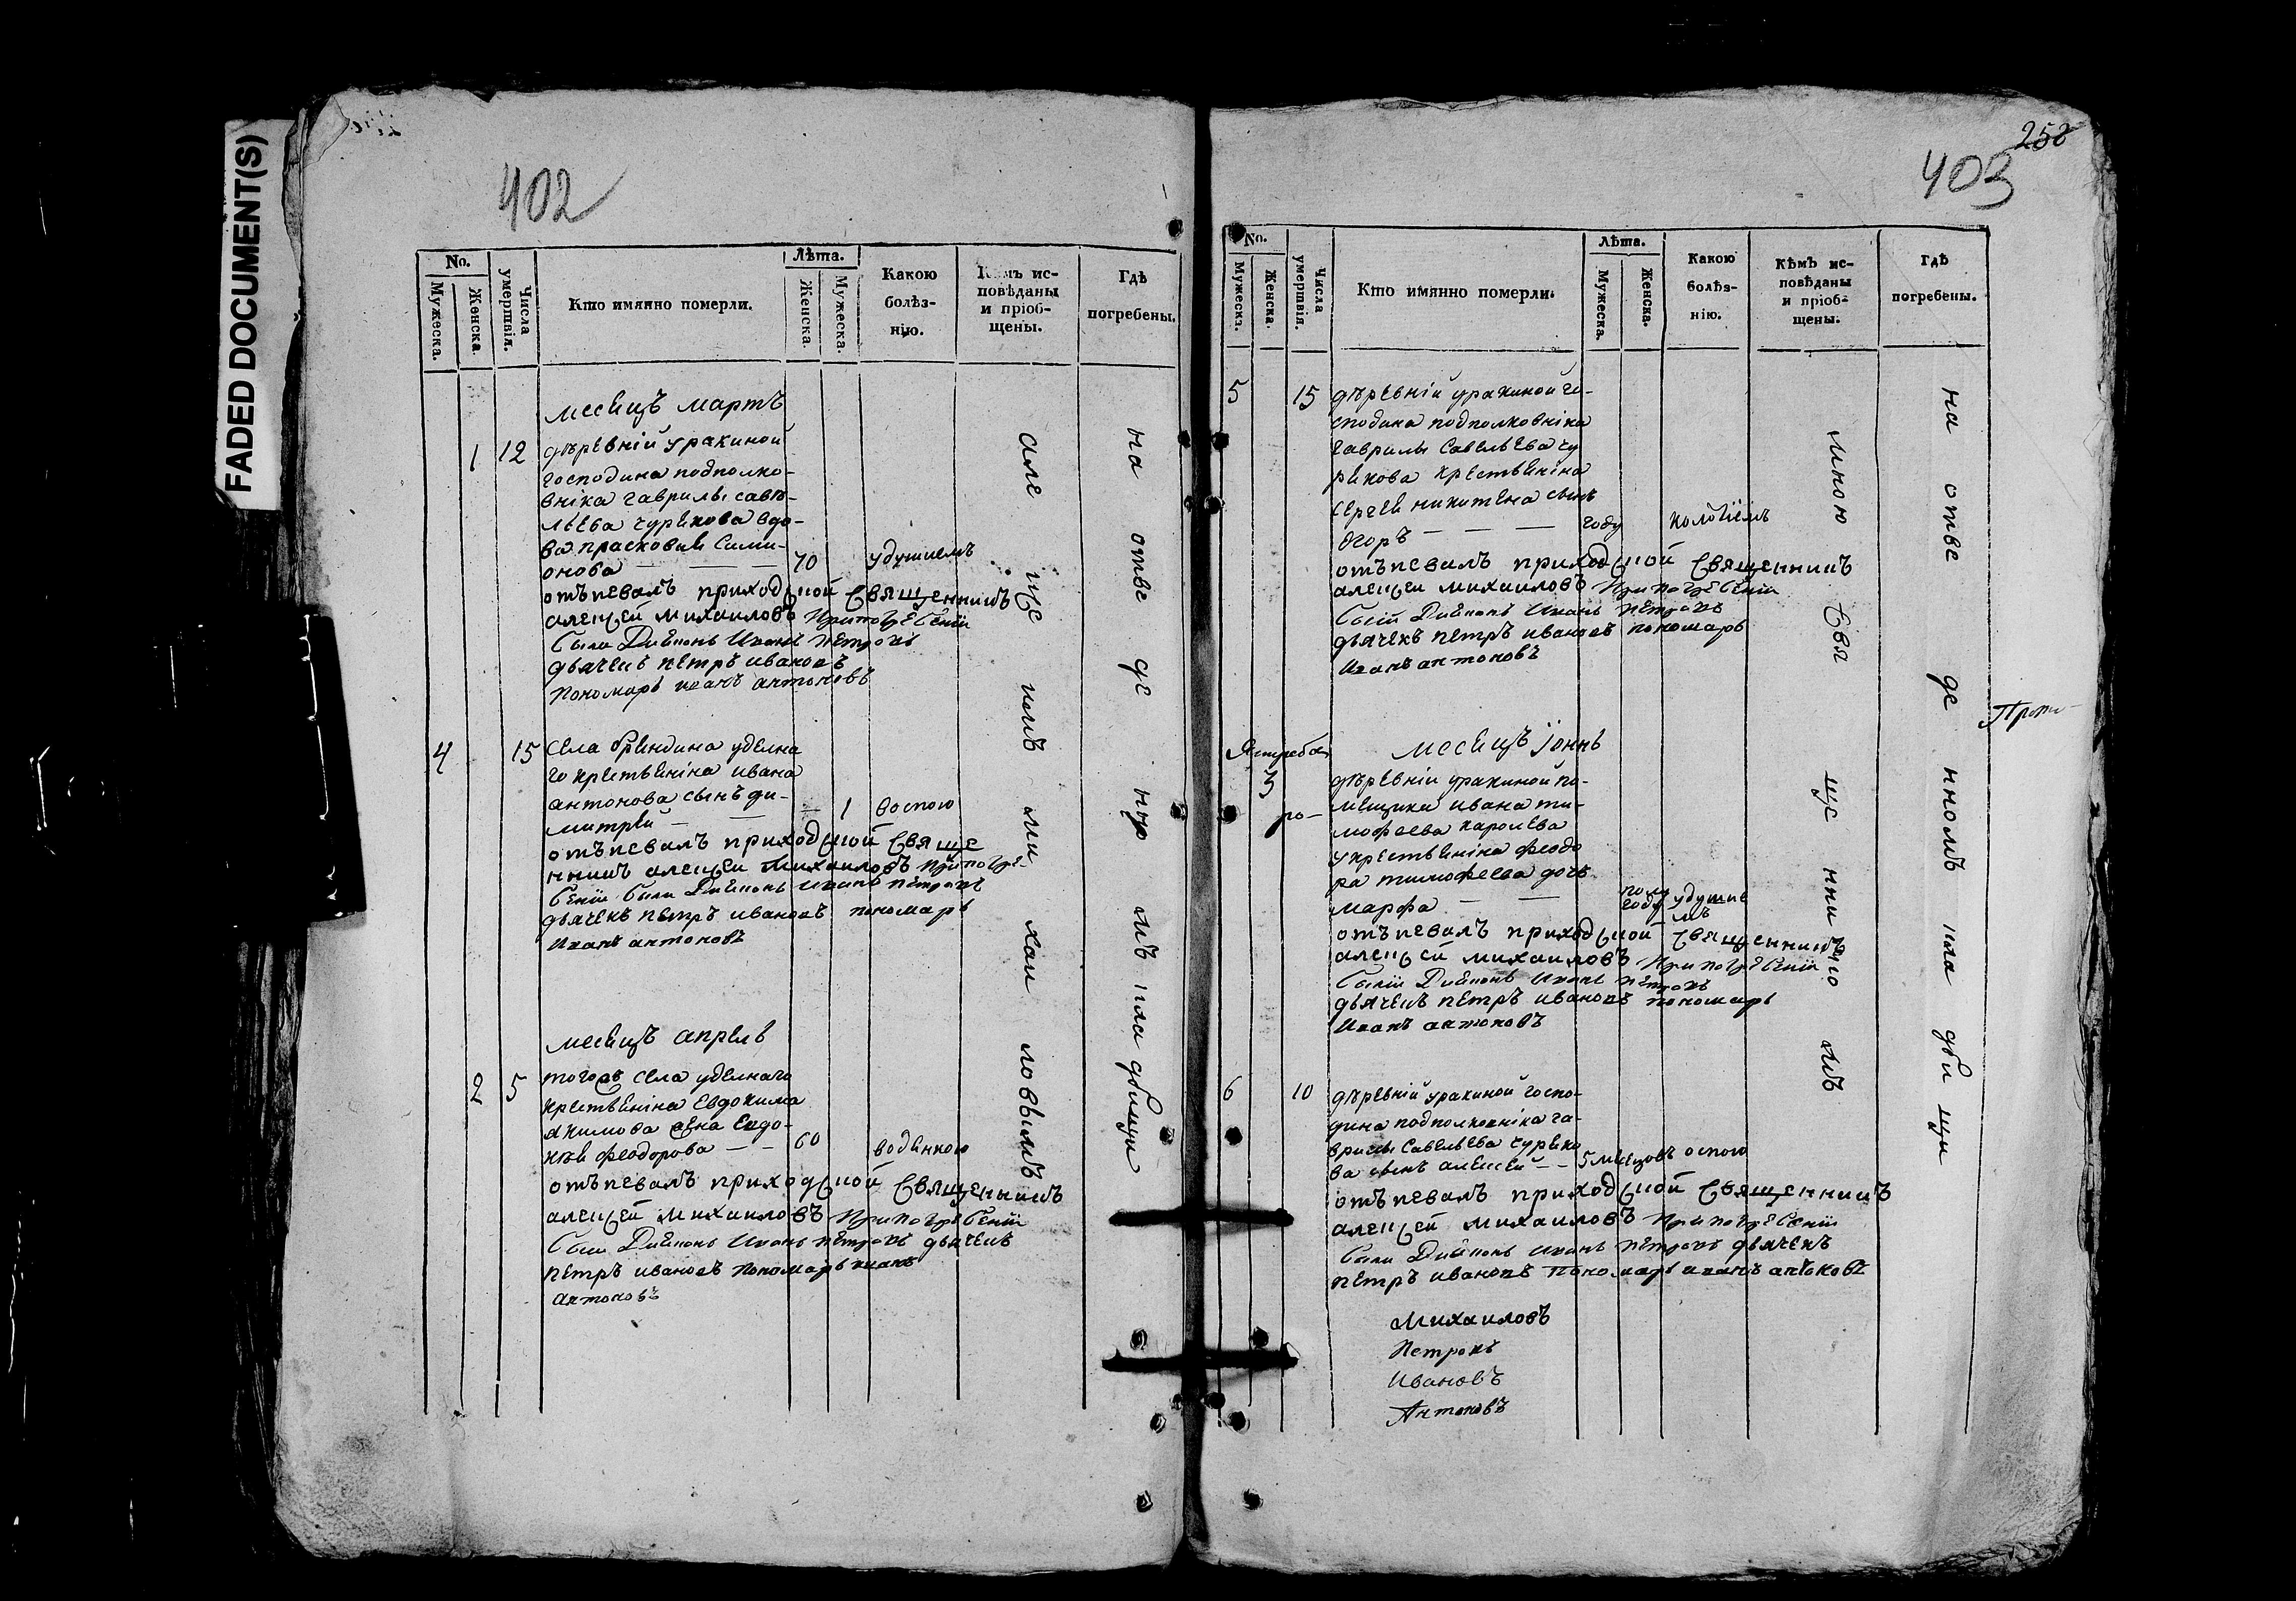 FADED DOCUMENT(S)
402
No.
Мужеска.
Женска.
Числа умертвія.
Кто имянно померли.
Лѣта.
Женска.
Мужеска.
Какою болѣз-
нію.
Кѣмъ ис-
повѣданы
и пріоб-
щены.
Гдѣ
погребены.
месецъ мартъ
1 12 деревній уракиной
господина подполко-
вніка гаврилы саве-
льева чурикова вдо-
ва прасковия Сими-
онова 70 удушиемъ
отъпевалъ приходской Священникъ
алексей михаиловъ При погребеніи
были Дияконъ Иванъ петровъ
дьячекъ петръ ивановъ
Пономарь иванъ антоновъ
4 15 села бриндина уделна
го крестьяніна ивана
антонова сынъ ди-
митрей 1 воспою
отъпевалъ приходской Свяще
нникъ алексеи Михаиловъ При погре
беніи были Дияконъ Иванъ петровъ
дьячекъ петръ ивановъ пономарь
Иванъ антоновъ
месецъ апрель
2 5 тогожъ села уделнаго
крестьяніна Евдокима
якимова жена Евдо-
кея феодорова 60 водянкою
отъпевалъ приходской Священникъ
алексей михаиловъ При погребеніи
были Дияконъ Иванъ петровъ дьячекъ
петръ ивановъ пономарь иванъ
антоновъ
але ксе иомъ ми хаи ловымъ
на отве де ною мъ кла дбищи
403
258
No.
Мужеска.
Женска.
Числа умертвія.
Кто имянно померли.
Лѣта.
Мужеска.
Женска.
Какою
болѣз-
нію.
Кѣмъ ис-
повѣданы
и пріоб-
щены.
Гдѣ
погребены.
5 15 деревній уракиной го-
сподина подполковніка
гаврилы Савельева чу
рикова крестьяніна
сергея никитина сынъ
егоръ году
отъпевалъ приходской Священникъ
алексеи михаиловъ При погребеніи
были Дияконъ Иванъ петровъ
дьячекъ петръ ивановъ пономарь
Иванъ антоновъ
Прото-
месецъ іюнь
3
деревніи уракиной по-
мещика ивана ти-
мофеева каролева
укрестьяніна феодо
ра тимофеева дочь
марфа пол году удушие
мъ
отъпевалъ приходской Священникъ
алексей михаиловъ При погребеніи
были Дияконъ Иванъ петровъ
дьячекъ петръ ивановъ пономарь
Иванъ антоновъ
6 10 деревній уракиной госпо-
дина подполковніка га-
врилы Савельева чурико
ва сынъ алексей 5 месецовъ оспою
отъпевалъ приходской Священникъ
алексей михаиловъ При погребеніи
были Дияконъ Иванъ петровъ дьячекъ
петръ ивановъ пономарь иванъ антоновъ
Михаиловъ
Петровъ
Ивановъ
Антоновъ
мною Свя ще нни ко мъ
на отве де нномъ кла дби щи